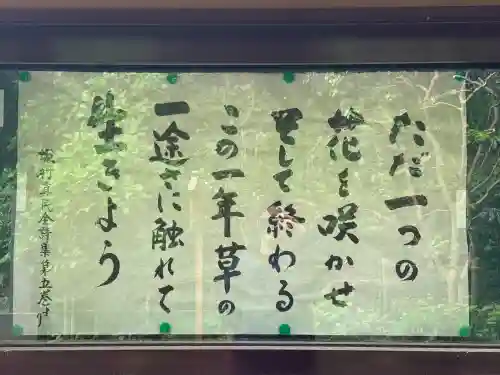 ただ一つの
花を咲かせ
そして終わる
この一年草の
一途さに触れて
生きよう
坂村真民全詩集第五巻より